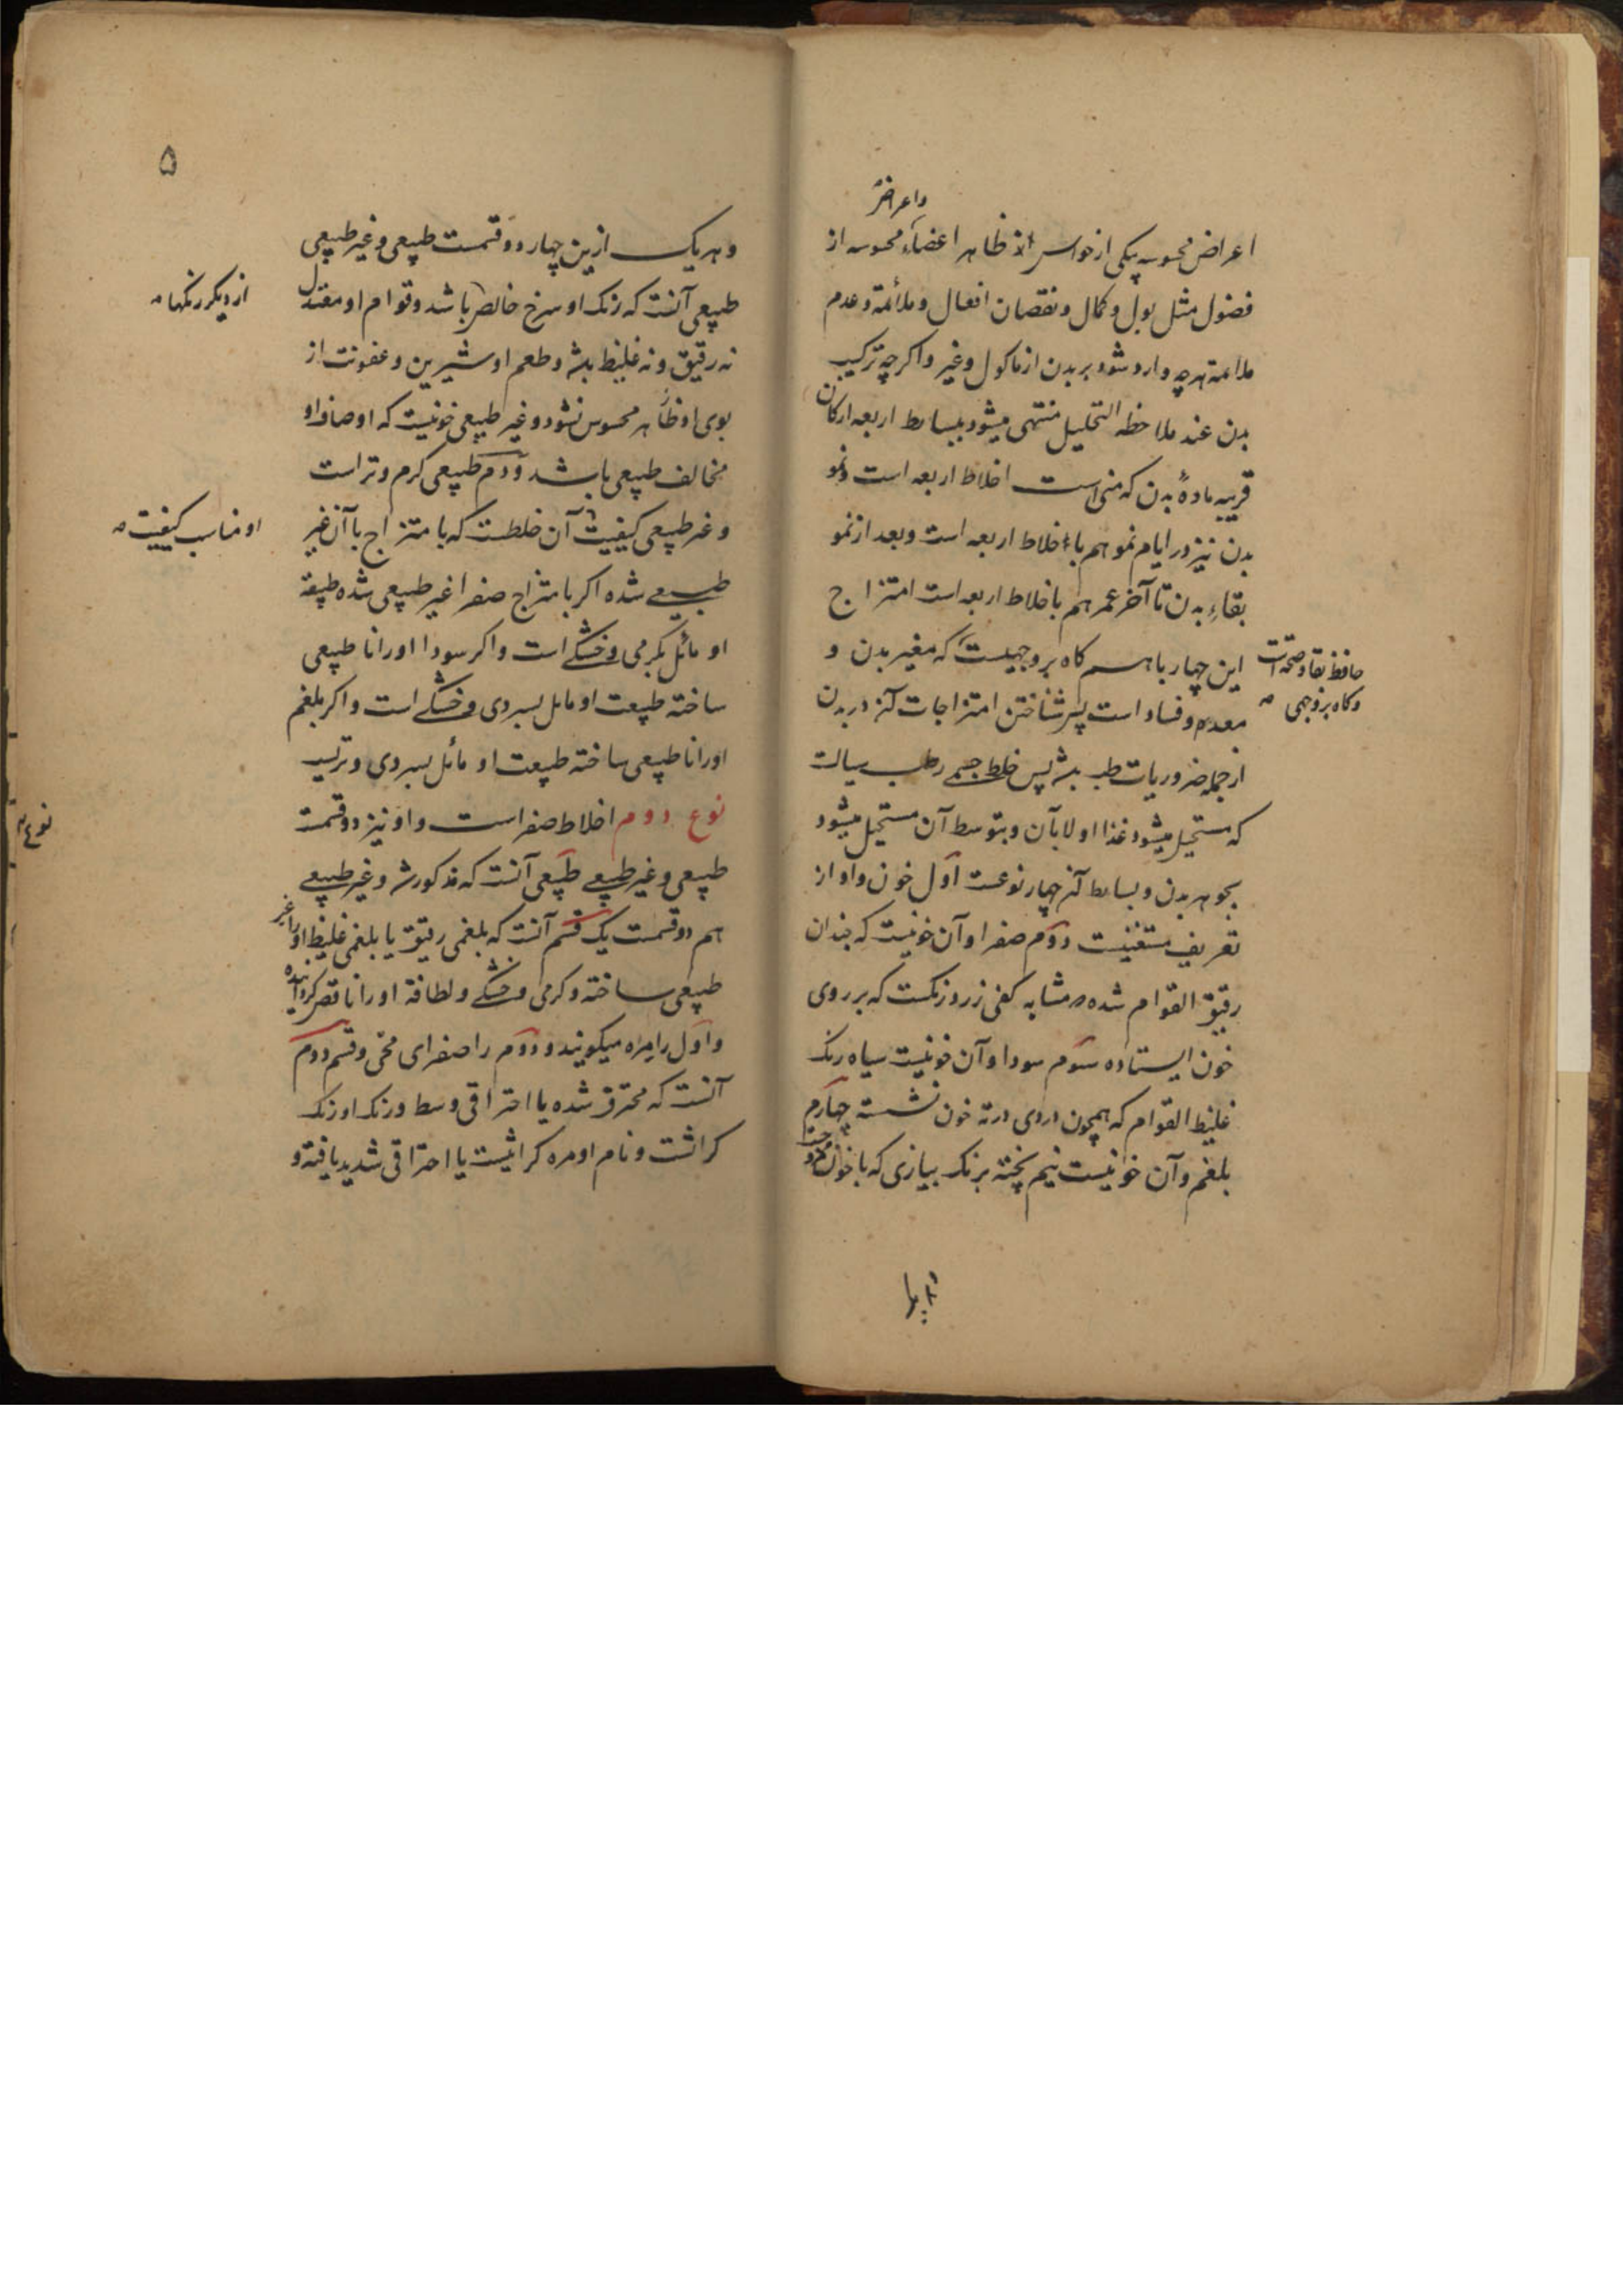 واعراض
اعراض محسوسه بیکی از حواس از ظاهر اعضاء محسوسه از
فضول مثل بول و کمال و نقصان افعال و ملائمة و عدم
ملائمة هرچه وارد شود بر بدن از ماکول و غیر واکرچه ترکیب
بدن عند ملاحظه التحلیل منتهی میشود ببسایط اربعه ارکان
قریبه مادهٔ بدن که منی است اخلاط اربعه است ونمو
بدن نیز در ایام نمو هم باخلاط اربعه است و بعد از نمو
بقاءِ بدن تا آخر عمر هم باخلاط اربعه است امتزاج
این چهار باهم کاه بر وجهیست که مغیر بدن و
حافظ بقا و صحة است
وکاه بر وجهی
معدم و فساد است پس شناختن امتزاجات آنها در بدن
از جمله ضروریات طب باشد پس خلط جسم رطب سیالست
که مستحیل میشود غذا اولا بآن و بتوسط آن مستحیل میشود
بجوهر بدن و بسایط آنها چهار نوعست اول خون واو از
تعریف مستغنیست دوم صفرا وآن خونیست که چندان
رقیق القوام شده مشابه کفی زرد رنکست که بر روی
خون ایستاده سوم سودا وآن خونیست سیاه رنک
غلیظ القوام که همچون دردی در ته خون نشسته چهارم
بلغم وآن خونیست نیم پخته برنک بیازی که با خون
وهریک ازین چهار دو قسمت طبیعی و غیر طبیعی
۵
طبیعی آنست که رنک او سرخ خالص باشد وقوام او معتدل
از دیکر رنکها
نه رقیق ونه غلیظ باشد وطعم او شیرین وعفونت از
بوی او ظاهر محسوس نشود وغیر طبیعی خونیست که اوصاف او
مخالف طبیعی باشد ودم طبیعی کرم وتر است
وغیر طبیعی کیفیت آن خلطست که بامتزاج با آن غیر
او مناسب کیفیت
طبیعی شده اکر بامتزاج صفرا غیر طبیعی شده طبیعة
او مائل بکرمی وخشکی است واکر سودا اورا نا طبیعی
ساخته طبیعت او مایل بسردی وخشکی است واکر بلغم
اورا نا طبیعی ساخته طبیعت او مائل بسردی وتریست
نوع دوم اخلاط صفراست واو نیز دو قسمت
نوع ۲
طبیعی وغیر طبیعی طبیعی آنست که مذکور شد وغیر طبیعی
هم دو قسمت یک قسم آنست که بلغمی رقیق یا بلغمی غلیظ اورا غیر
طبیعی ساخته وکرمی وخشکی ولطافة اورا ناقص کردانیده
واول را مره میکویند ودوم را صفرای محی وقسم دوم
آنست که محترق شده یا احتراقی وسط ورنک او رنک
کراثست ونام او مره کراثیست یا احتراقی شدید یافته و